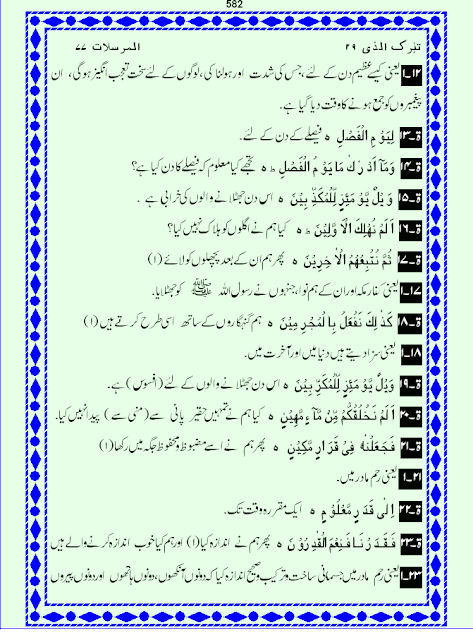 582
تبٰرک الذی ۲۹ المرسلات ۷۷
۱۲۔۱ یعنی کیسے عظیم دن کے لئے ، جس کی شدت اور ہولناکی ، لوگوں کے لئے سخت تعجب انگیز ہوگی ، ان
پیغمبروں کو جمع ہونے کا وقت دیا گیا ہے۔
ۃ۔۱۳ لِيَوْمِ الْفَصْلِ ہ فیصلے کے دن کے لئے۔
ۃ۔۱۴ وَمَآ اَدْرٰكَ مَا يَوْمُ الْفَصْلِ ہ ط تجھے کیا معلوم کہ فیصلے کا دن کیا ہے؟
ۃ۔۱۵ وَيْلٌ يَّوْمَئِذٍ لِّلْمُكَذِّبِيْنَ ہ اس دن جھٹلانے والوں کی خرابی ہے ۔
ۃ۔۱۶ اَلَمْ نُهْلِكِ الْاَوَّلِيْنَ ہ ط کیا ہم نے اگلوں کو ہلاک نہیں کیا؟
ۃ۔۱۷ ثُمَّ نُتْبِعُهُمُ الْاٰخِرِيْنَ ہ پھر ہم ان کے بعد پچھلوں کو لائے (۱)
۱۷۔۱ یعنی کفار مکہ اور ان کے ہم نوا، جنہوں نے رسول اللہ ﷺ کو جھٹلایا۔
ۃ۔۱۸ كَذٰلِكَ نَفْعَلُ بِالْمُجْرِمِيْنَ ہ ہم گنہگاروں کے ساتھ اسی طرح کرتے ہیں (۱)
۱۸۔۱ یعنی سزا دیتے ہیں دنیا میں اور آخرت میں۔
ۃ۔۱۹ وَيْلٌ يَّوْمَئِذٍ لِّلْمُكَذِّبِيْنَ ہ اس دن جھٹلانے والوں کے لئے (افسوس) ہے۔
ۃ۔۲۰ اَلَمْ نَخْلُقْكُّمْ مِّنْ مَّآءٍ مَّهِيْنٍ ہ کیا ہم نے تمہیں حقیر پانی سے (منی سے) پیدا نہیں کیا۔
ۃ۔۲۱ فَجَعَلْنٰهُ فِيْ قَرَارٍ مَّكِيْنٍ ہ پھر ہم نے اسے مضبوط و محفوظ جگہ میں رکھا (۱)
۲۱۔۱ یعنی رحم مادر میں۔
ۃ۔۲۲ اِلٰى قَدَرٍ مَّعْلُوْمٍ ہ ایک مقررہ وقت تک۔
ۃ۔۲۳ فَقَدَرْنَا فَنِعْمَ الْقٰدِرُوْنَ ہ پھر ہم نے اندازہ کیا (۱) اور ہم کیا خوب اندازہ کرنے والے ہیں
۲۳۔۱ یعنی رحم مادر میں جسمانی ساخت و ترکیب و صحیح اندازہ کیا کہ دونوں آنکھوں ، دونوں ہاتھوں اور دونوں پیروں